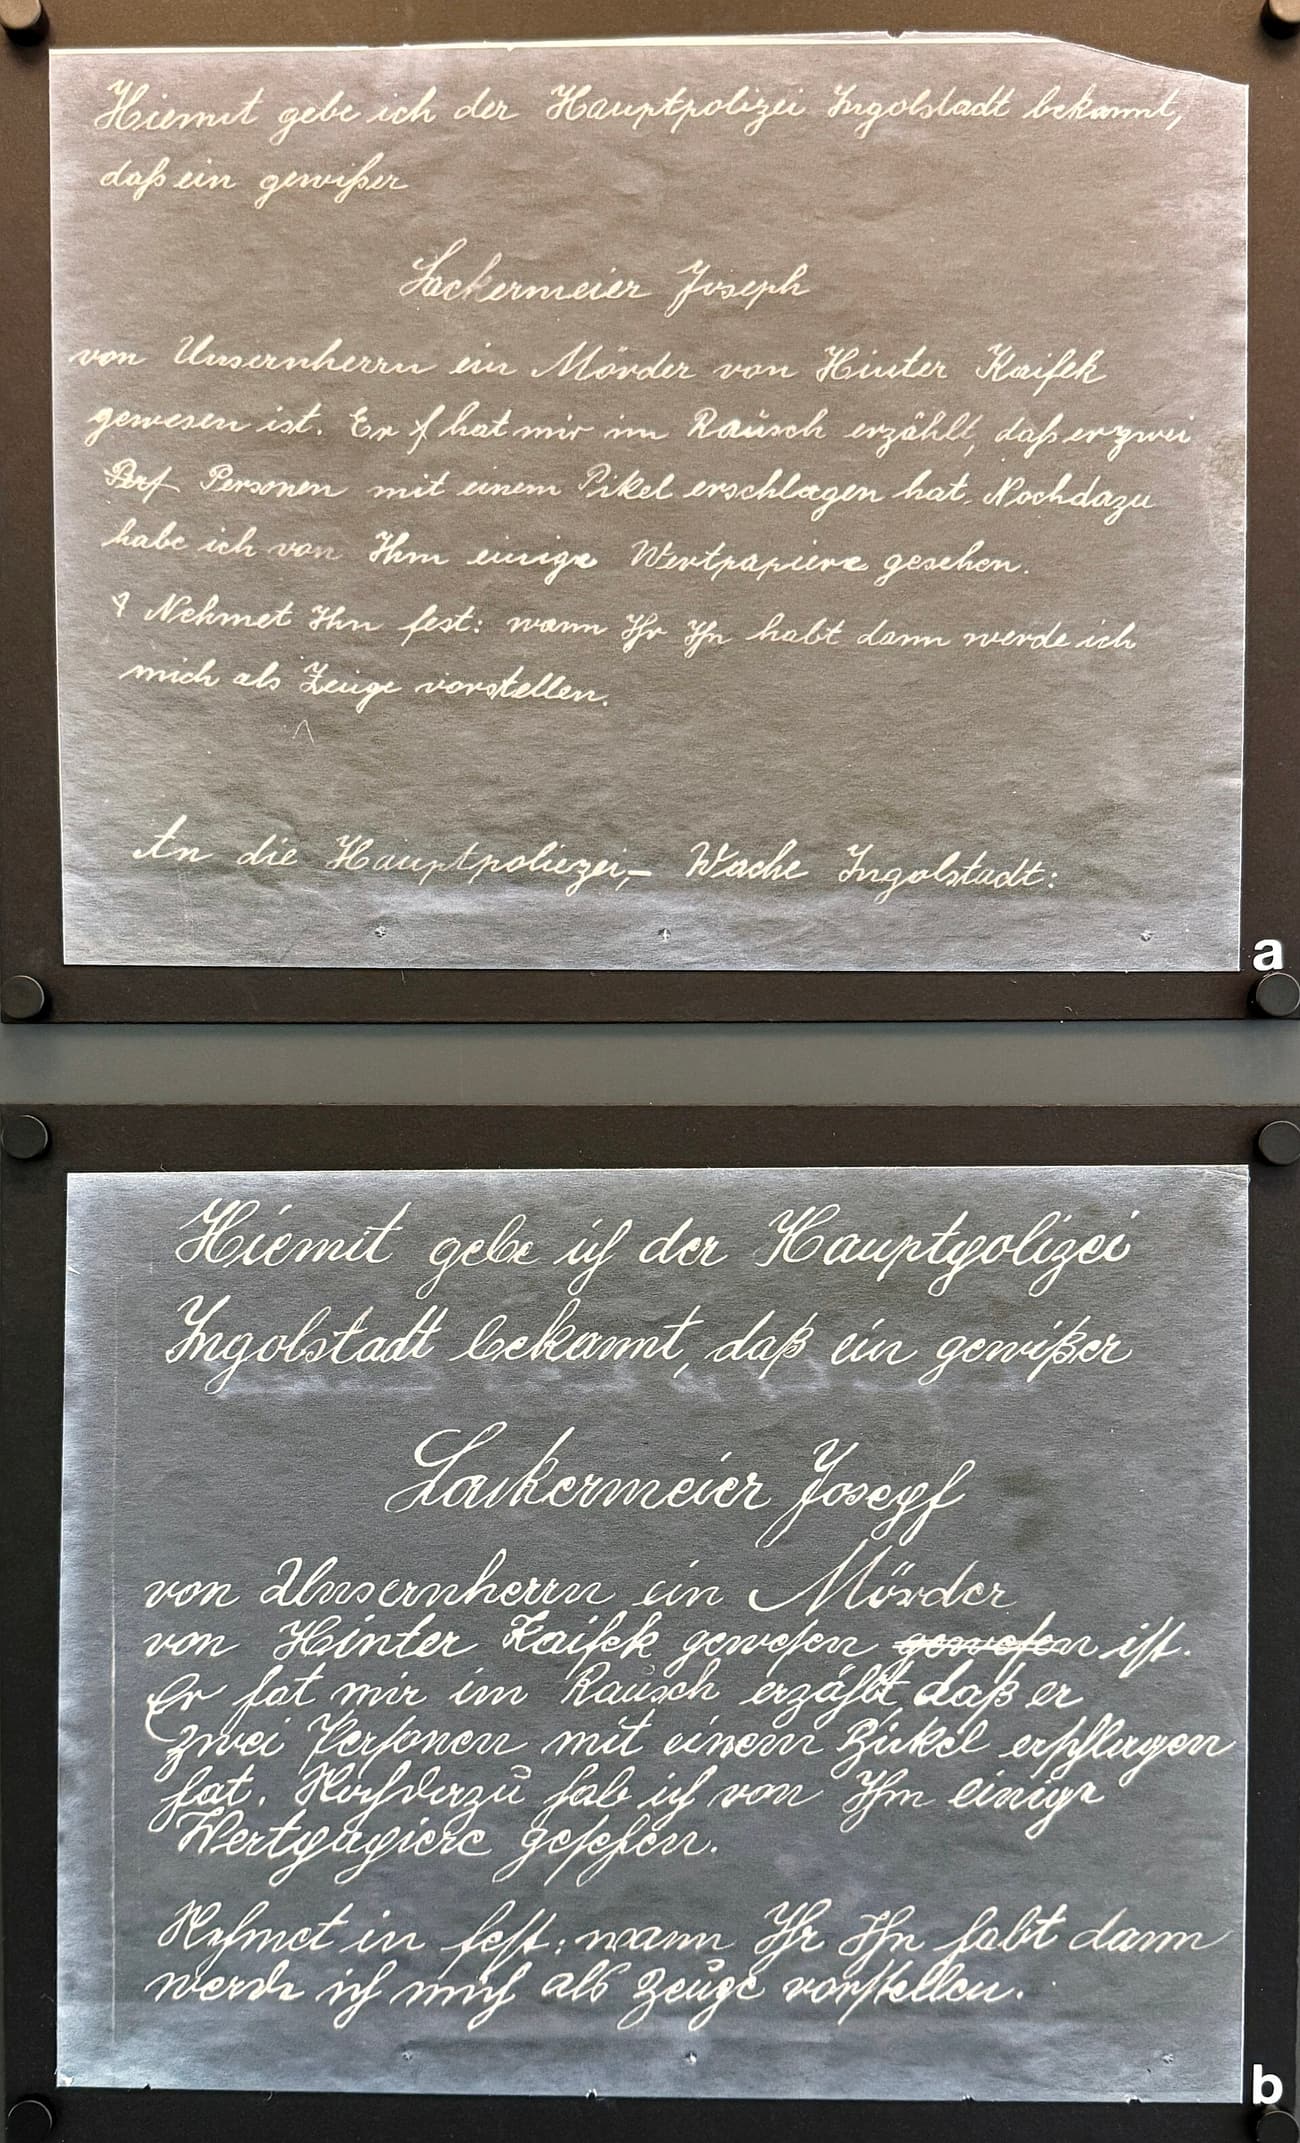 Hiemit gebe ich der Hauptpolizei Ingolstadt bekannt,
daß ein gewißer
Lackermeier Joseph
von Unsernherrn ein Mörder von Hinter Kaifek
gewesen ist. Er f hat mir im Rausch erzählt, daß er zwei
Perf Personen mit einem Pikel erschlagen hat. Nochdazu
habe ich von Ihm einige Wertpapiere gesehen.
Nehmet Ihn fest: wann Ihr Ihn habt dann werde ich
mich als Zeuge vorstellen.
An die Hauptpoliezei,– Wache Ingolstadt:
a
Hiemit gebe ich der Hauptpolizei
Ingolstadt bekannt, daß ein gewißer
Lackermeier Joseph
von Unsernherrn ein Mörder
von Hinter Kaifek gewesen gewesen ist.
Er hat mir im Rausch erzählt, daß er
zwei Personen mit einem Pickel erschlagen
hat. Nochdazu hab ich von Ihm einige
Wertpapiere gesehen.
Nehmet in fest: wann Ihr Ihn habt dann
werde ich mich als Zeuge vorstellen.
b